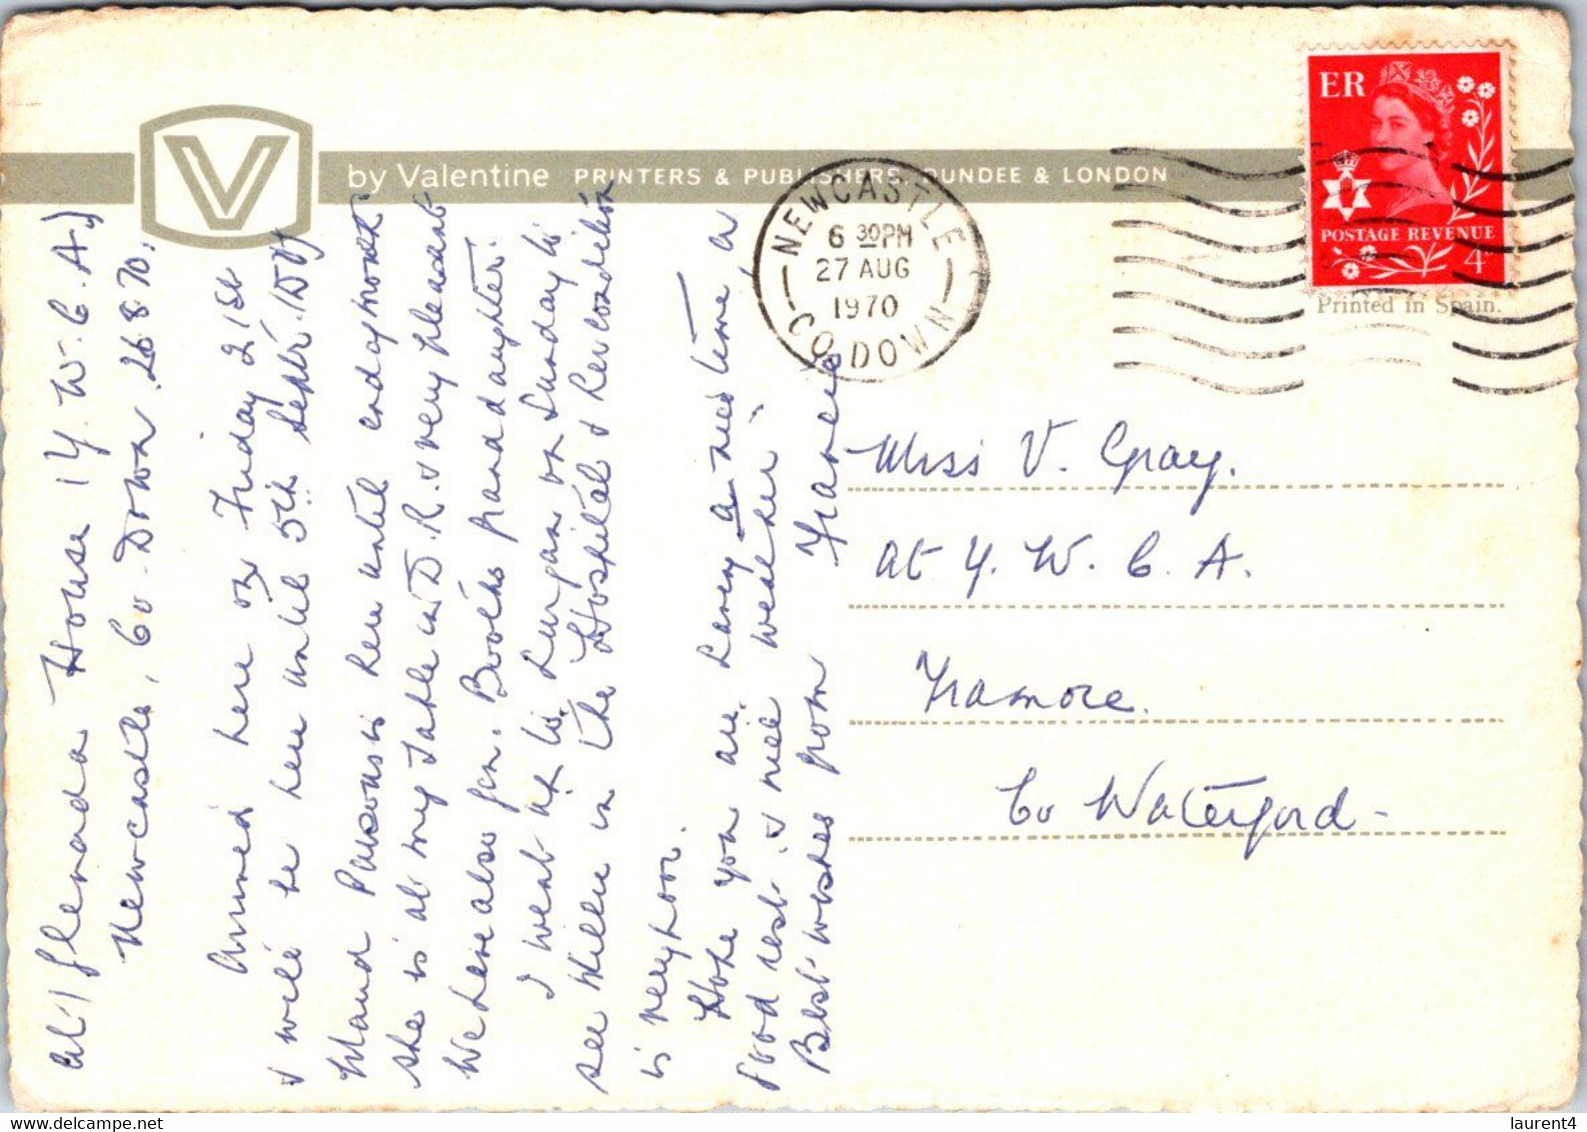 V by Valentine PRINTERS & PUBLISHERS, DUNDEE & LONDON
ER
POSTAGE REVENUE
4D
Printed in Spain.
NEWCASTLE
6 30PM
27 AUG
1970
CO. DOWN
at Glenada House (Y.W.C.A.)
Newcastle, Co. Down. 26.8.70.
Arrived here on Friday 21st
& will be here until 5th Sept.
Maud is here until end of month
she is at my table in D.R. & very pleasant
We have also Gen. Booth's grand daughter.
I went up to Lurgan on Sunday to
see Millie in the Hospital & her condition
is very poor.
Hope you are having a nice time, a
good rest & nice weather.
Best wishes from Frances
Miss V. Gray.
at Y.W.C.A.
Tramore.
Co Waterford -
delcampe.net
laurent4